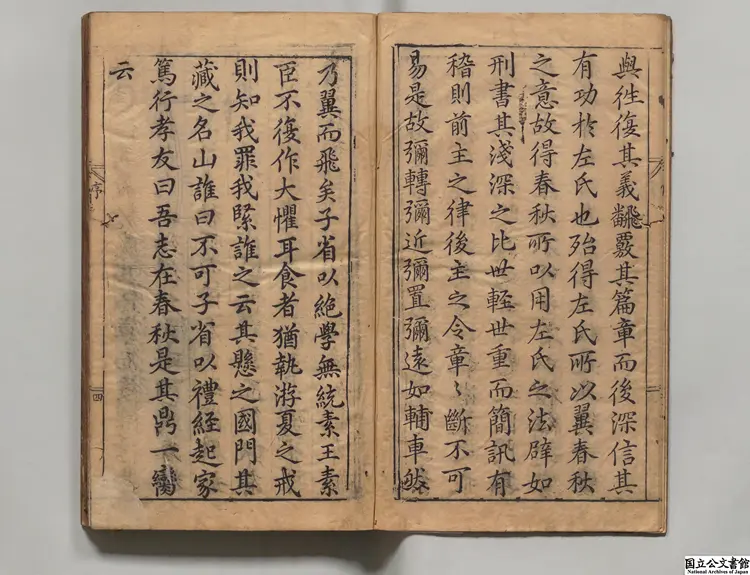 與往復其義飜覈其篇章而後深信其
有功於左氏也殆得左氏所以翼春秋
之意故得春秋所以用左氏之法辟如
刑書其淺深之比世輕世重而簡訊有
稽則前主之律後主之令章〻斷不可
易是故彌轉彌近彌置彌遠如輔車然
乃翼而飛矣子省以絕學無統素王素
臣不復作大懼耳食者猶執游夏之戒
則知我罪我緊誰之云其懸之國門其
藏之名山誰曰不可子省以禮經起家
篤行孝友曰吾志在春秋是其鼎一臠
云
序
四
国立公文書館
National Archives of Japan